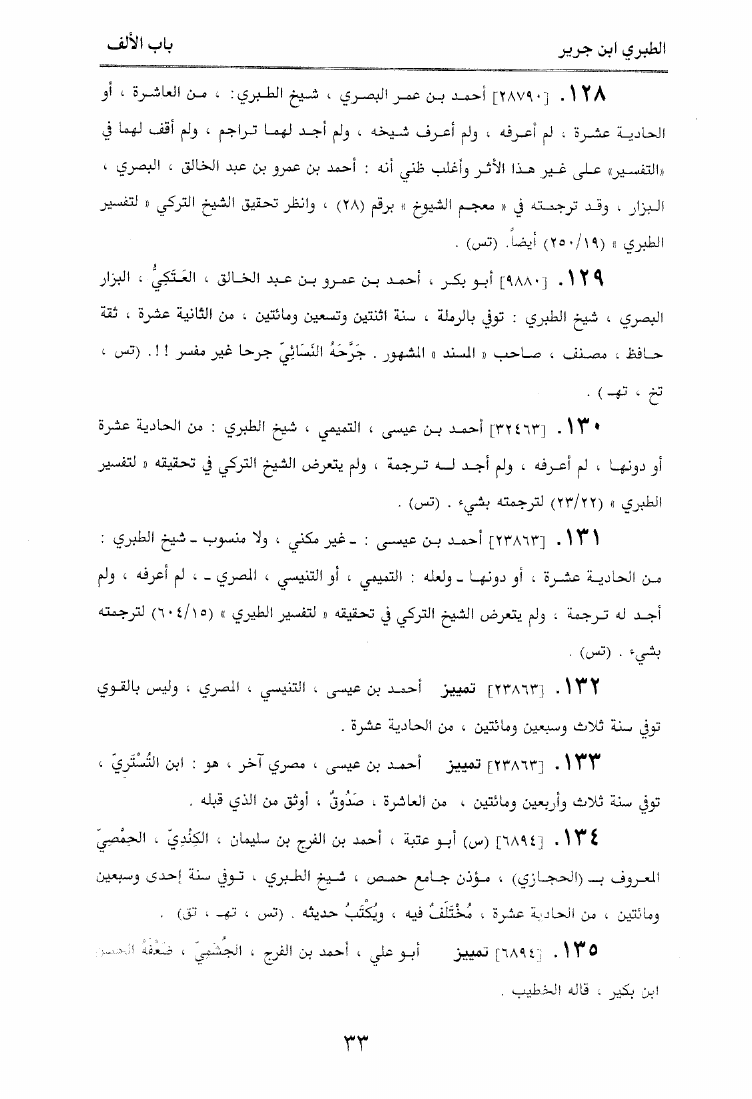 الطبري ابن جرير باب الألف
١٢٨. [٢٨٧٩٠] أحمد بن عمر البصري ، شيخ الطبري: ، من العاشرة ، أو
الحادية عشرة ، لم أعرفه ، ولم أعرف شيخه ، ولم أجد لهما تراجم ، ولم أقف لهما في
«التفسير» على غير هذا الأثر وأغلب ظني أنه : أحمد بن عمرو بن عبد الخالق ، البصري ،
البزار ، وقد ترجمته في « معجم الشيوخ » برقم (٢٨) ، وانظر تحقيق الشيخ التركي « لتفسير
الطبري » (٢٥٠/١٩) أيضاً. (تس) .
١٢٩. [٩٨٨٠] أبو بكر ، أحمد بن عمرو بن عبد الخالق ، العَتَكِيُّ ، البزار
البصري ، شيخ الطبري : توفي بالرملة ، سنة اثنتين وتسعين ومائتين ، من الثانية عشرة ، ثقة
حافظ ، مصنف ، صاحب « المسند » المشهور . جَرَّحَهُ النَّسَائِيّ جرحا غير مفسر !!. (تس ،
تخ ، تهـ ) .
١٣٠. [٣٢٤٦٣] أحمد بن عيسى ، التميمي ، شيخ الطبري : من الحادية عشرة
أو دونها ، لم أعرفه ، ولم أجد له ترجمة ، ولم يتعرض الشيخ التركي في تحقيقه « لتفسير
الطبري » (٢٣/٢٢) لترجمته بشيء . (تس) .
١٣١. [٢٣٨٦٣] أحمد بن عيسى : ـ غير مكني ، ولا منسوب ـ شيخ الطبري :
من الحادية عشرة ، أو دونها ـ ولعله : التميمي ، أو التنيسي ، المصري ـ ، لم أعرفه ، ولم
أجد له ترجمة ، ولم يتعرض الشيخ التركي في تحقيقه « لتفسير الطبري » (٦٠٤/١٥) لترجمته
بشيء . (تس) .
١٣٢. [٢٣٨٦٣] تمييز أحمد بن عيسى ، التنيسي ، المصري ، وليس بالقوي
توفي سنة ثلاث وسبعين ومائتين ، من الحادية عشرة .
١٣٣. [٢٣٨٦٣] تمييز أحمد بن عيسى ، مصري آخر ، هو : ابن التُسْتَرِيّ ،
توفي سنة ثلاث وأربعين ومائتين ، من العاشرة ، صَدُوقٌ ، أوثق من الذي قبله .
١٣٤. [٦٨٩٤] (س) أبو عتبة ، أحمد بن الفرج بن سليمان ، الكِنْدِيّ ، الحِمْصِيّ
المعروف بـ (الحجازي) ، مؤذن جامع حمص ، شيخ الطبري ، توفي سنة إحدى وسبعين
ومائتين ، من الحادية عشرة ، مُخْتَلَفٌ فيه ، ويُكْتَبُ حديثه . (تس ، تهـ ، تق) .
١٣٥. [٦٨٩٤] تمييز أبو علي ، أحمد بن الفرج ، الجُشَمِيّ ، ضَعَّفَهُ الحسن
ابن بكير ، قاله الخطيب .
٣٣